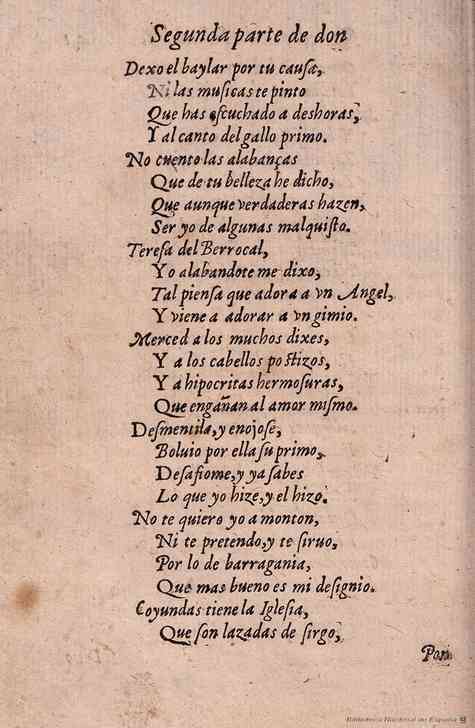 Segunda parte de don
Dexo el baylar por tu causa,
Ni las musicas te pinto
Que has escuchado a deshoras,
Y al canto del gallo primo.
No cuento las alabanças
Que de tu belleza he dicho,
Que aunque verdaderas hazen,
Ser yo de algunas malquisto.
Teresa del Berrocal,
Yo alabandote me dixo,
Tal piensa que adora a vn Angel,
Y viene a adorar a vn gimio.
Merced a los muchos dixes,
Y a los cabellos postizos,
Y a hipocritas hermosuras,
Que engañan al amor mismo.
Desmentila, y enojose,
Boluio por ella su primo,
Desafiome, y ya sabes
Lo que yo hize, y el hizo.
No te quiero yo a monton,
Ni te pretendo, y te siruo,
Por lo de barragania,
Que mas bueno es mi designio.
Coyundas tiene la Iglesia,
Que son lazadas de sirgo,
Pon
Biblioteca Nacional de España